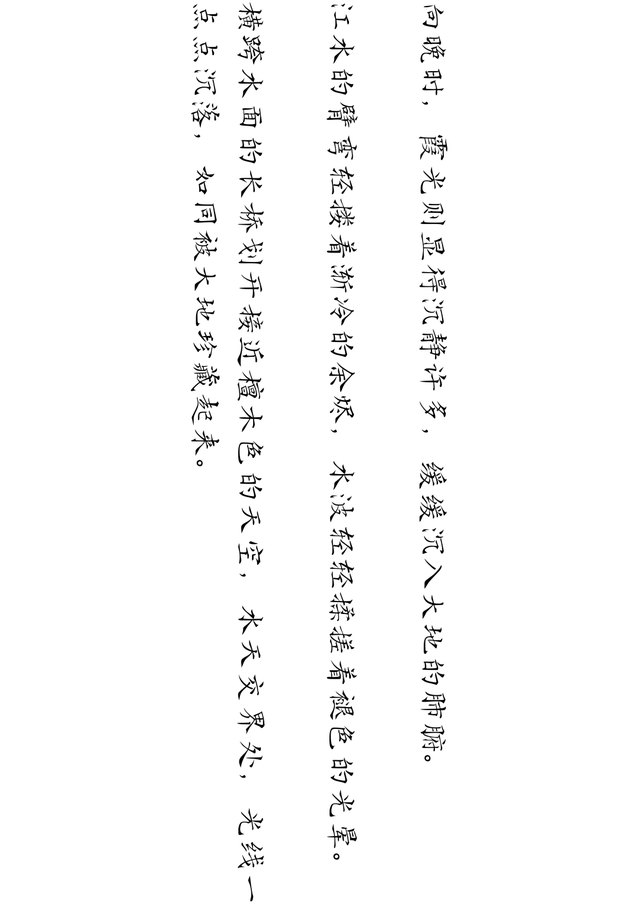 向晚时，霞光则显得沉静许多，缓缓沉入大地的肺腑。
江水的臂弯轻搂着渐冷的余烬，水波轻轻揉搓着褪色的光晕。
横跨水面的长桥划开接近檀木色的天空，水天交界处，光线一
点点沉落，如同被大地珍藏起来。